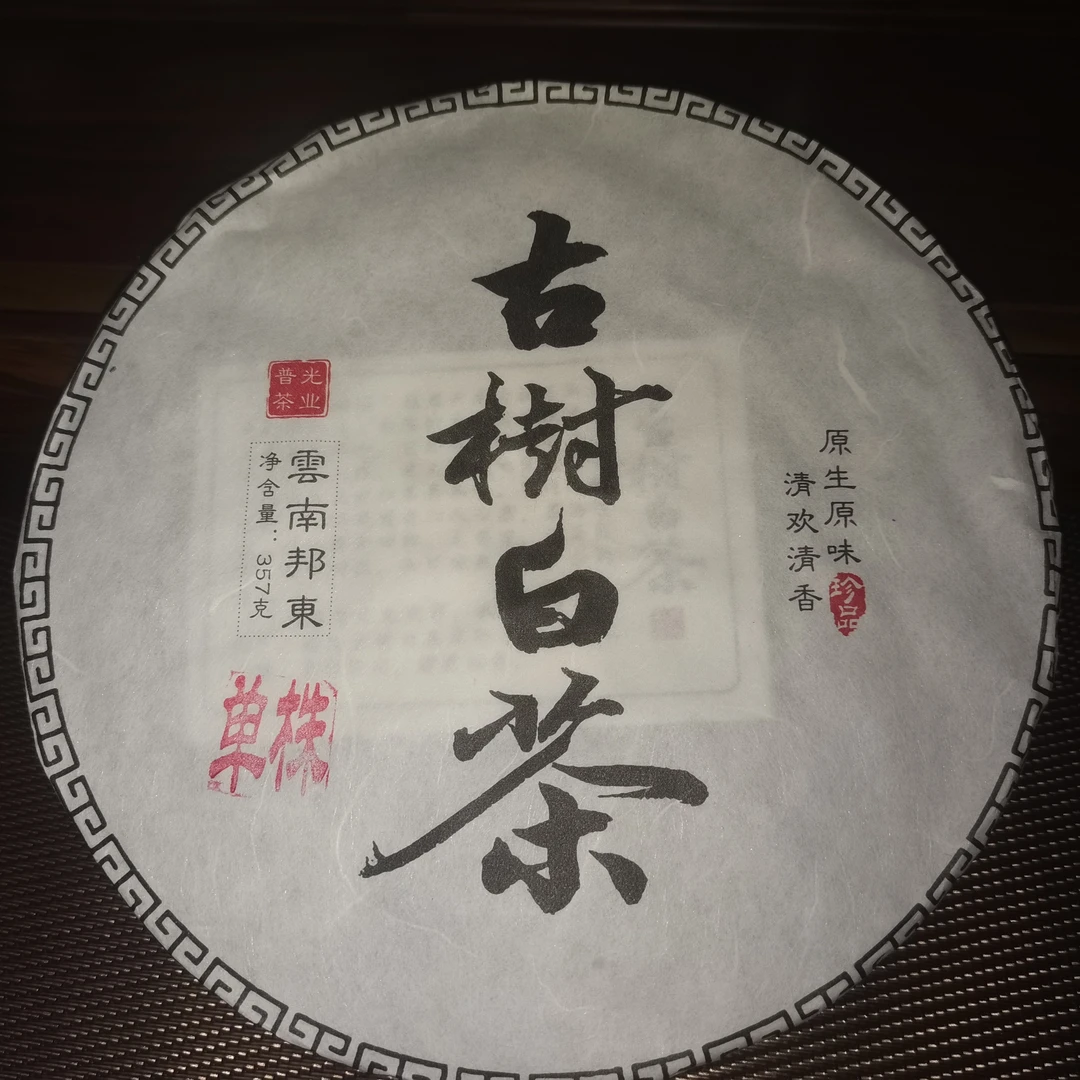 原生原味
珍品
清欢清香
古樹白茶
光业
普茶
雲南邦東
净含量：357克
单株